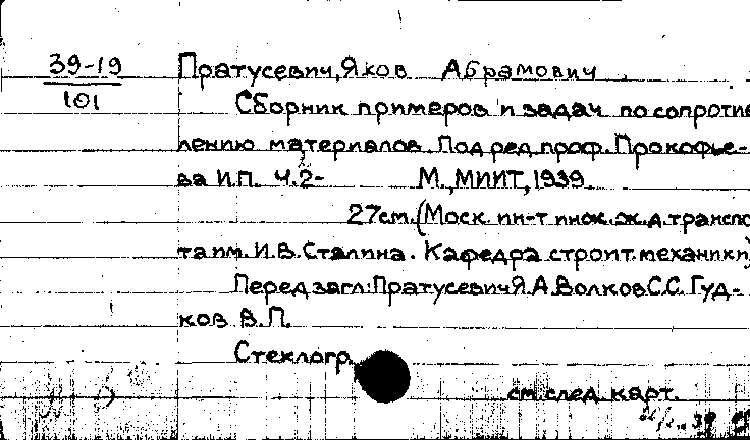 39-19 Пратусевич, Яков Абрамович
101
Сборник примеров и задач по сопротив
лению материалов. Под ред. проф. Прокофье-
ва И.П. Ч.2- М., МИИТ, 1939.
27см. (Моск. ин-т инж. ж.д. транспо
та им. И.В. Сталина. Кафедра строит. механики)
Перед загл: Пратусевич Я.А. Волков С.С. Гуд-
ков В.П.
Стеклогр.
см. след. карт.